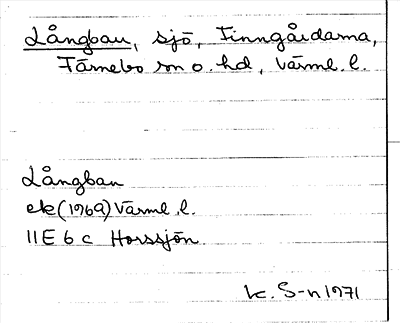 Långban, sjö, Finngårdarna,
Färnebo sn o. hd, Värml. l.
Långban
ek (1969) Värml. l.
11E 6 c Horssjön
K. S-n 1971